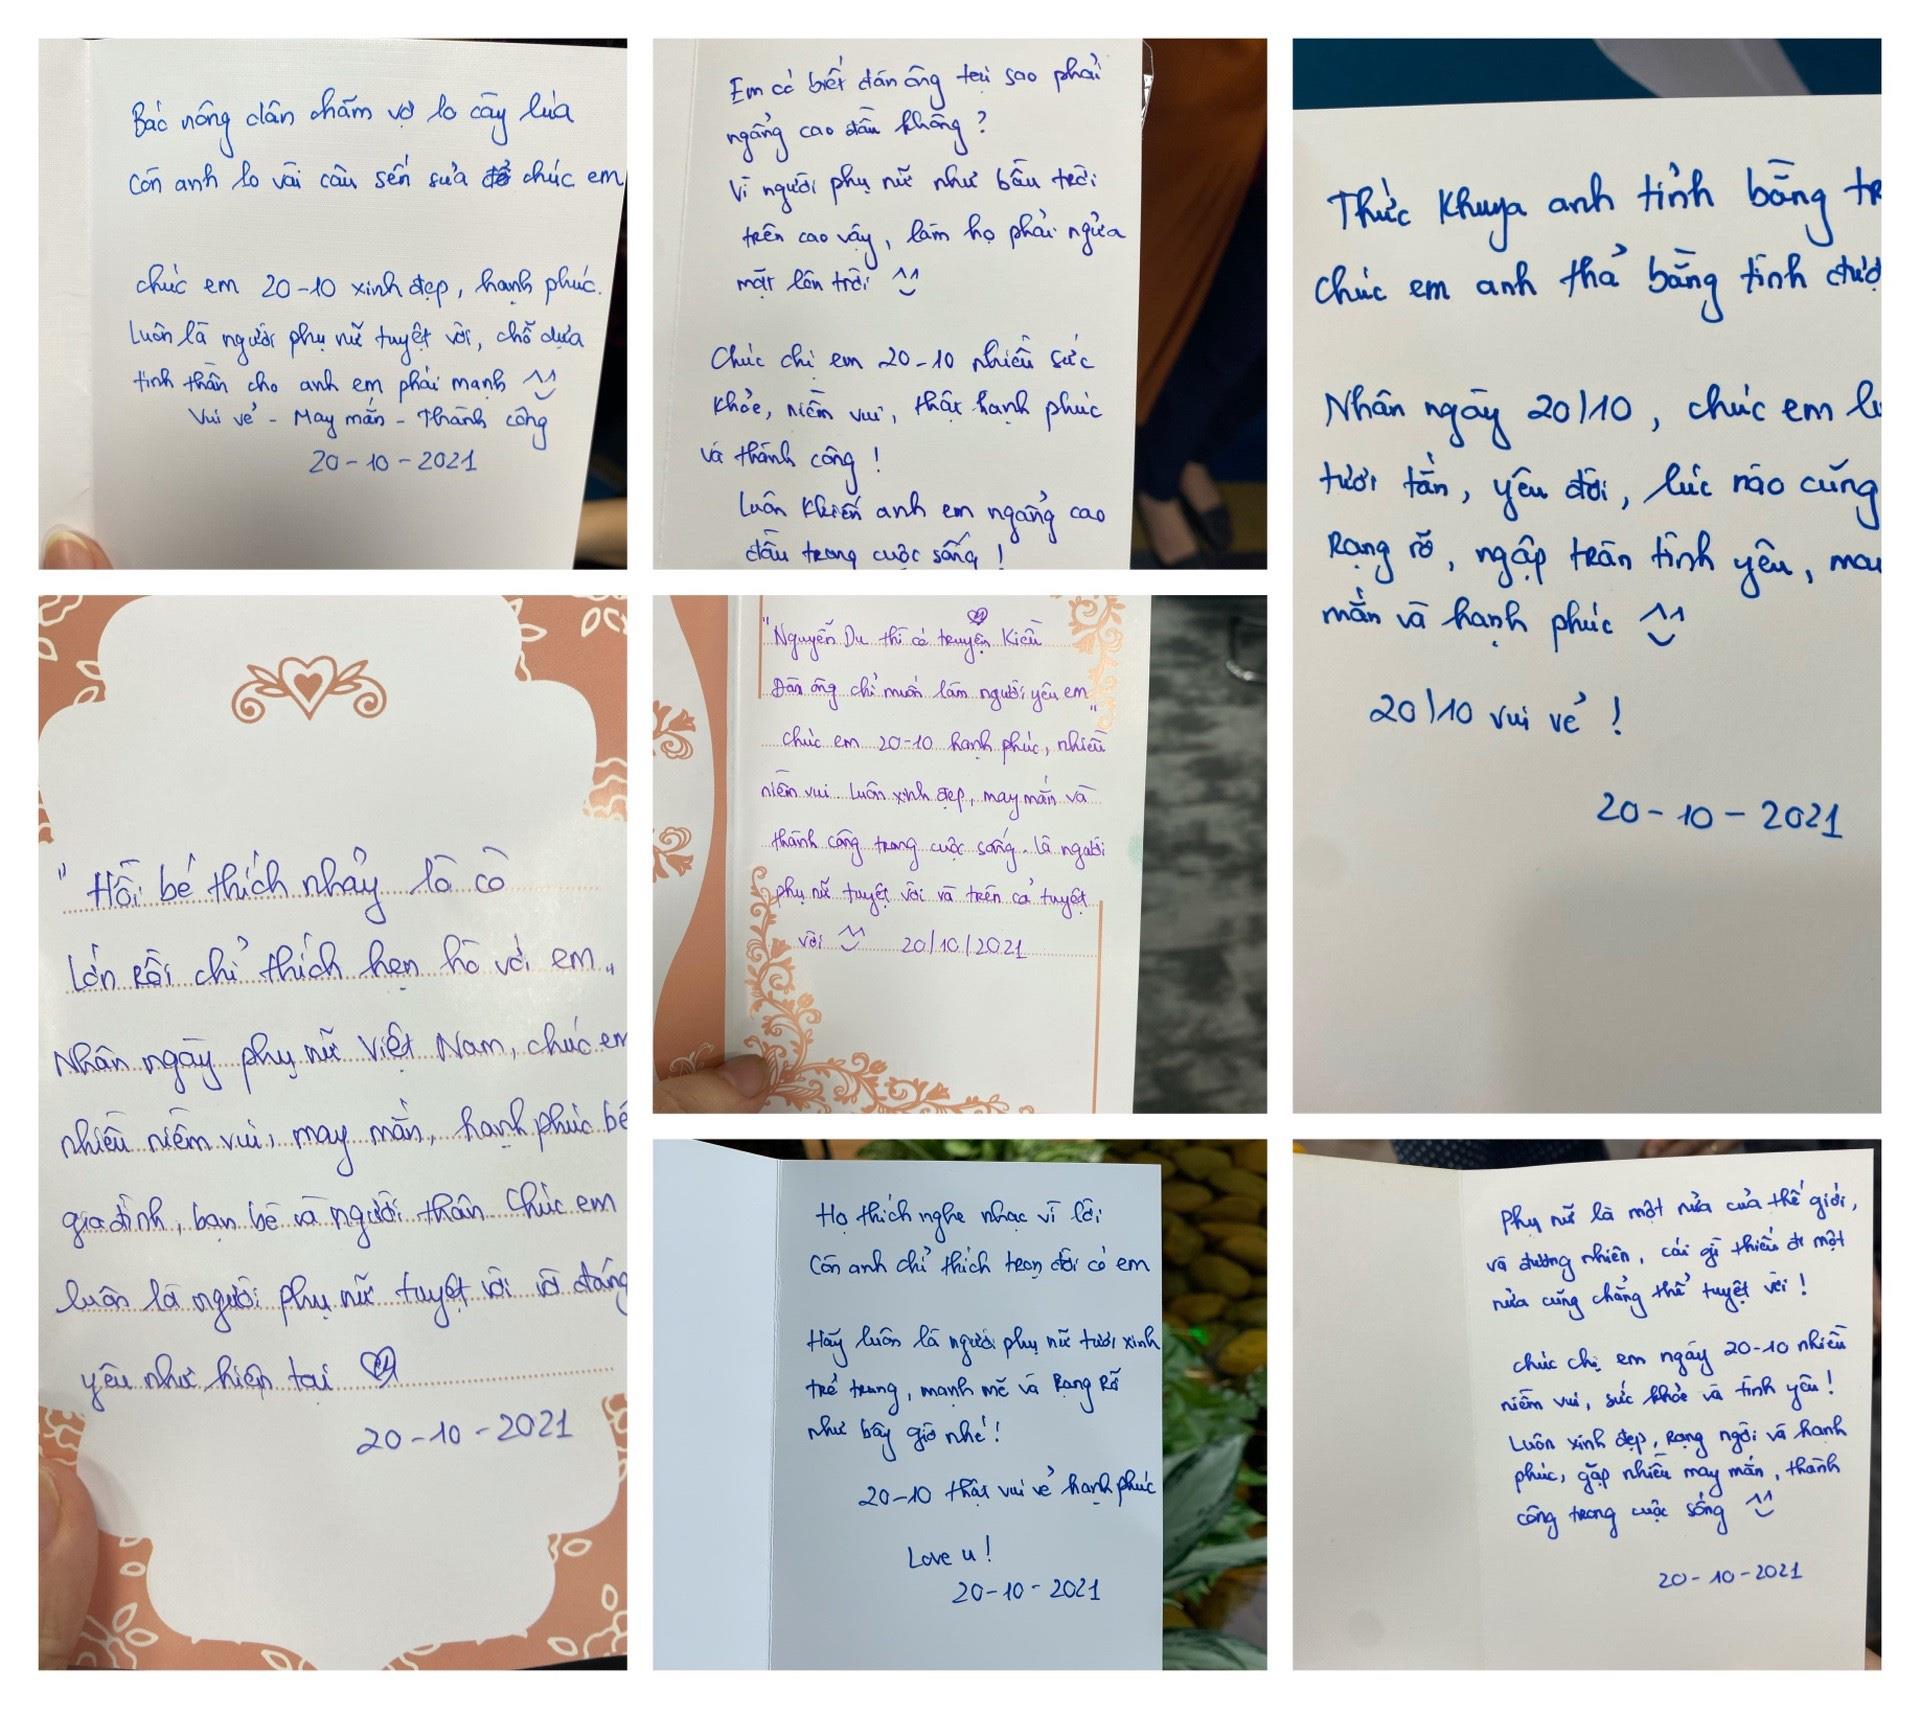 Bác nông dân chăm vợ lo cây lúa
Còn anh lo vài câu sến sửa để chúc em
chúc em 20-10 xinh đẹp, hạnh phúc.
Luôn là người phụ nữ tuyệt vời, chỗ dựa
tinh thần cho anh em phái mạnh ^^
Vui vẻ - May mắn - Thành công
20-10-2021
Em có biết đàn ông tại sao phải
ngẩng cao đầu không?
Vì người phụ nữ như bầu trời
trên cao vậy, làm họ phải ngửa
mặt lên trời ^^
Chúc chị em 20-10 nhiều sức
khỏe, niềm vui, thật hạnh phúc
và thành công!
Luôn khiến anh em ngẩng cao
đầu trong cuộc sống!
Thức khuya anh tính bằng
chúc em anh thả bằng tình
Nhân ngày 20/10, chúc em
tươi tắn, yêu đời, lúc nào cũng
Rạng rỡ, ngập tràn tình yêu, may
mắn và hạnh phúc ^^
20/10 vui vẻ!
20-10-2021
"Hồi bé thích nhảy lò cò
Lớn rồi chỉ thích hẹn hò với em"
Nhân ngày phụ nữ Việt Nam, chúc em
nhiều niềm vui, may mắn, hạnh phúc bê
gia đình, bạn bè và người thân. Chúc em
luôn là người phụ nữ tuyệt vời và đáng
yêu như hiện tại
20-10-2021
"Nguyễn Du thì có truyện Kiều
Đàn ông chỉ muốn làm người yêu em"
chúc em 20-10 hạnh phúc, nhiều
niềm vui. Luôn xinh đẹp, may mắn và
thành công trong cuộc sống. là người
phụ nữ tuyệt vời và trên cả tuyệt
vời ^^ 20/10/2021
Họ thích nghe nhạc vì lời
Còn anh chỉ thích trọn đời có em
Hãy luôn là người phụ nữ tươi xinh
trẻ trung, mạnh mẽ và Rạng Rỡ
như bây giờ nhé!
20-10 thật vui vẻ hạnh phúc
Love u!
20-10-2021
Phụ nữ là một nửa của thế giới,
và đương nhiên, cái gì thiếu đi một
nửa cũng chẳng thể tuyệt vời!
chúc chị em ngày 20-10 nhiều
niềm vui, sức khỏe và tình yêu!
Luôn xinh đẹp, rạng ngời và hạnh
phúc, gặp nhiều may mắn, thành
công trong cuộc sống ^^
20-10-2021